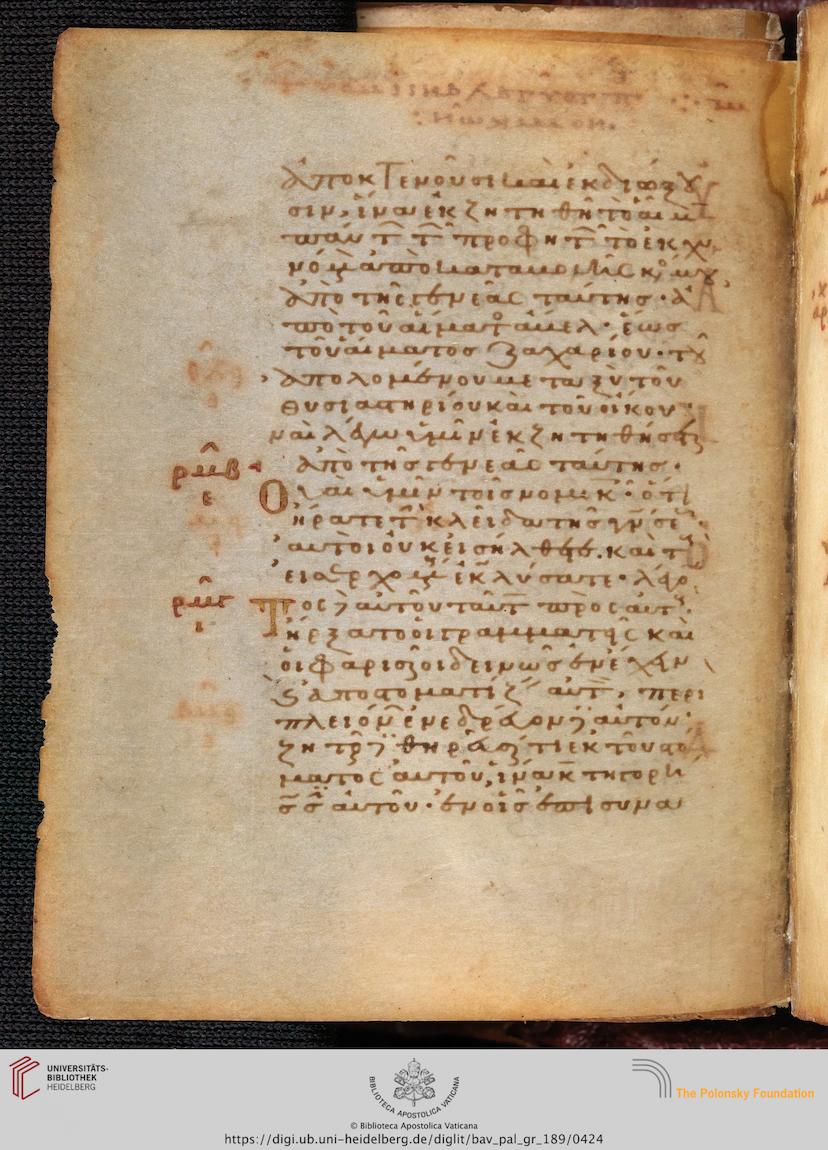 ἀποκτενοῦσι καὶ ἐκδιώξου
σιν, ἵνα ἐκζητηθῆ τὸ αἷμα
πάντ τ προφητ τὸ ἐκχυ
νόμ ἀπὸ καταβολῆς κόσμου
ἀπὸ τῆς γενεᾶς ταύτης· ἀ
πὸ τοῦ αἵματ ἄβελ· ἕως
τοῦ αἵματος ζαχαρίου· τοῦ
ἀπολομένου μεταξὺ τοῦ
θυσιαστηρίου καὶ τοῦ οἴκου·
ναὶ λέγω ὑμῖν ἐκζητηθήσεται
ἀπὸ τῆς γενεᾶς ταύτης·
ρμβ
ι
Οὐαὶ ὑμῖν τοῖς νομικ· ὅτι
ἤρατε τ κλεῖδα τῆς γνώσε·
αὐτοὶ οὐκ εἰσήλθετε. καὶ τ
εἰσερχομ ἐκωλύσατε· λέγο
ρμγ
ι
τος δὲ αὐτοῦ ταῦτ πρὸς αὐτ·
ἤρξατο οἱ γραμματεῖς καὶ
οἱ φαρισαῖοι δεινῶς ἐνέχειν
καὶ ἀποστοματίζειν αὐτ, περὶ
πλειόν ἐνεδρεύοντες αὐτόν·
ζητοῦντες θηρεῦσαί τι ἐκ τοῦ στό
ματος αὐτοῦ, ἵνα κατηγορή
σωσιν αὐτοῦ· ἐν οἷς ἐπισυνα
UNIVERSITÄTS-
BIBLIOTHEK
HEIDELBERG
BIBLIOTECA APOSTOLICA VATICANA
The Polonsky Foundation
© Biblioteca Apostolica Vaticana
https://digi.ub.uni-heidelberg.de/diglit/bav_pal_gr_189/0424